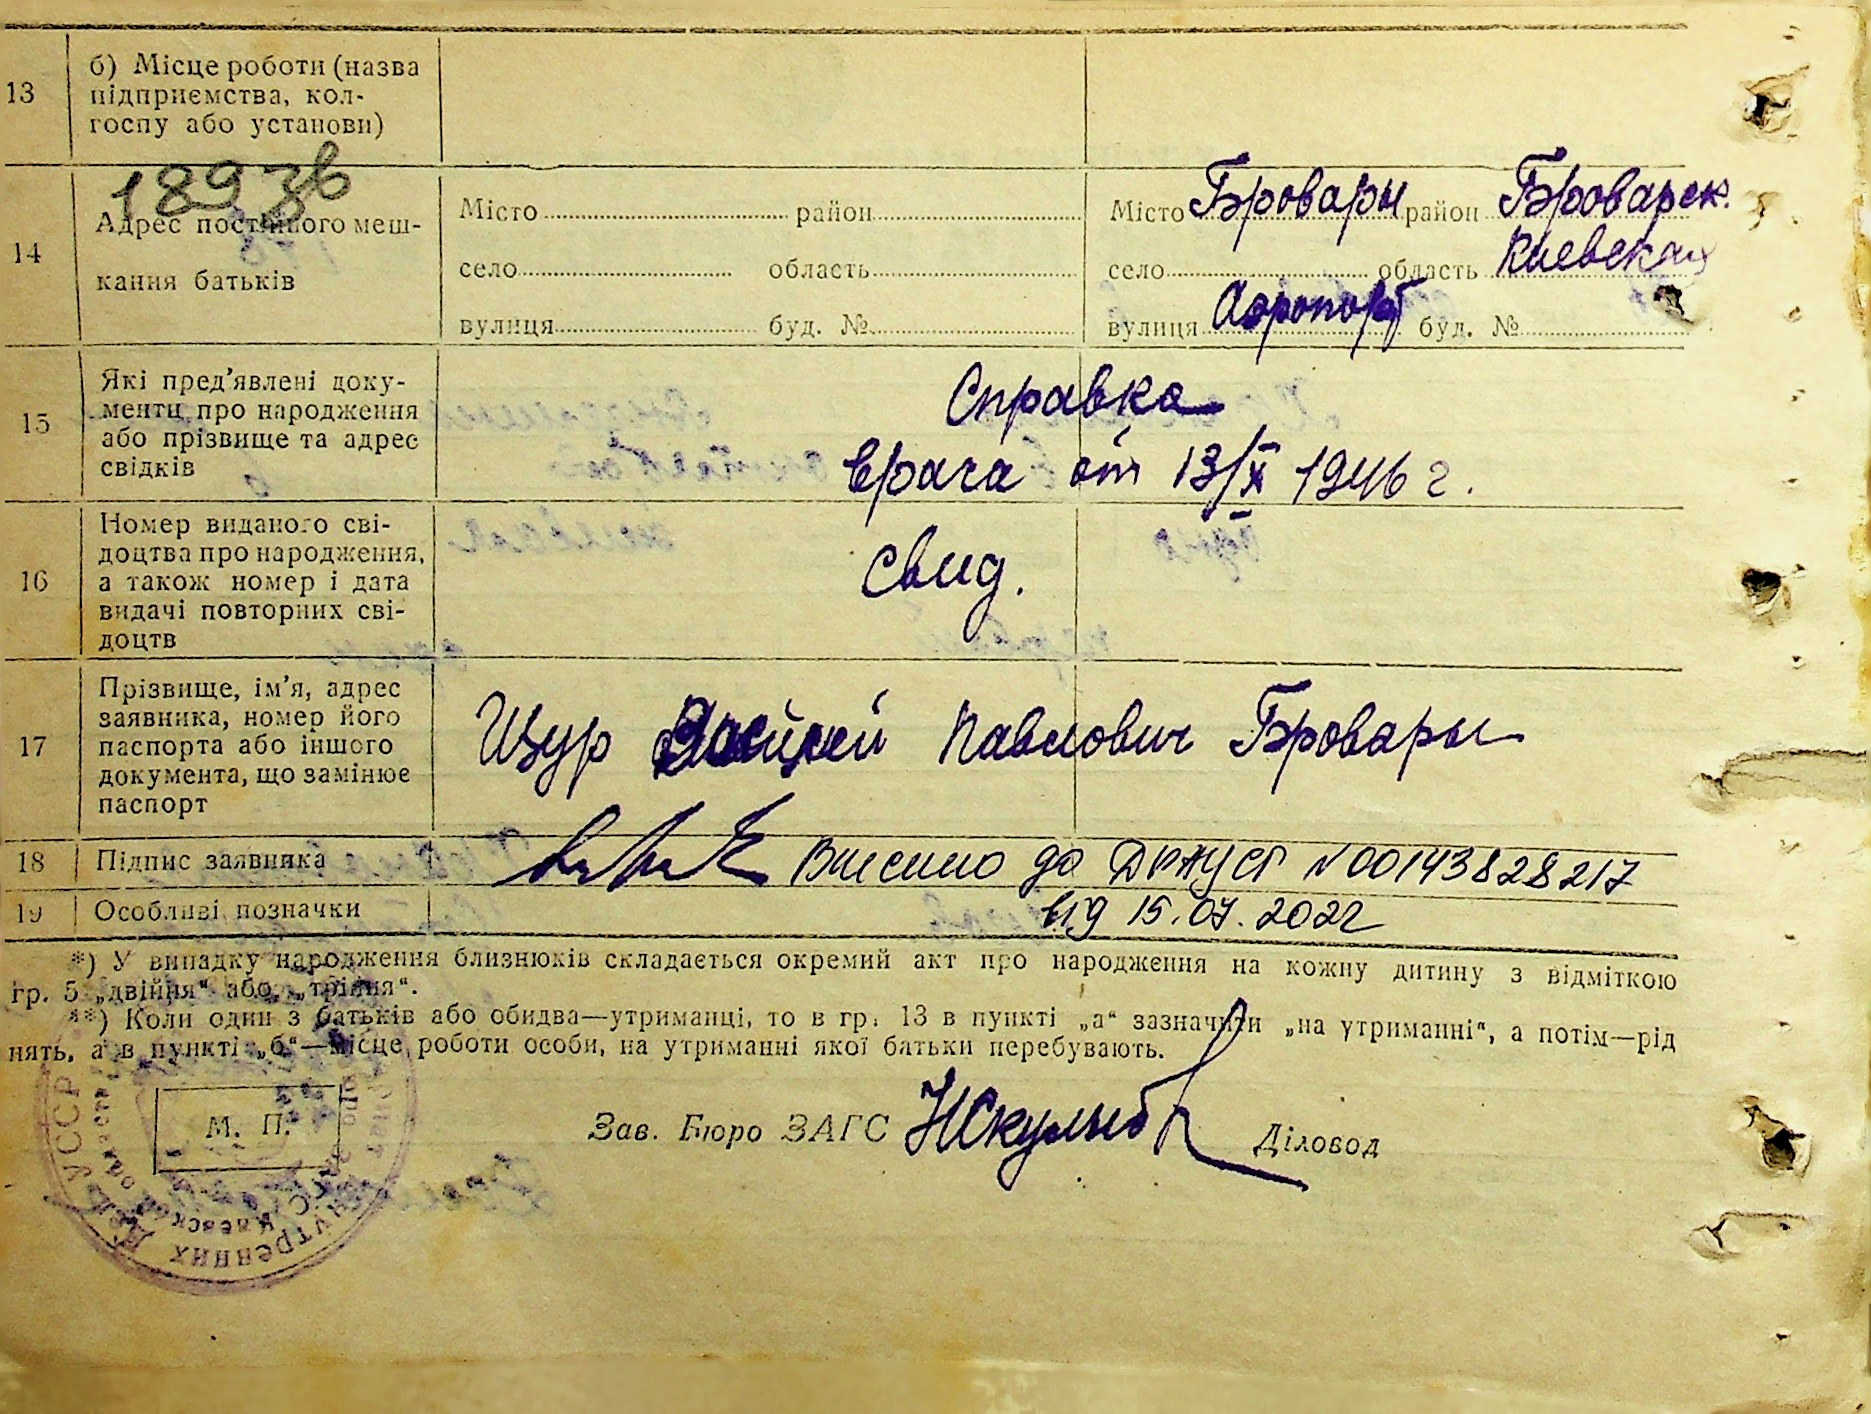 13 б) Місце роботи (назва
підприємства, кол-
госпу або установи)
14 Адрес постійного меш-
кання батьків
Місто район
село область
вулиця буд. №
Місто Бровары район Броварск.
село область Киевская
вулиця Аэропорт буд. №
15 Які пред'явлені доку-
менти про народження
або прізвище та адрес
свідків
Справка
врача от 13/X 1946 г.
16 Номер виданого сві-
доцтва про народження,
а також номер і дата
видачі повторних сві-
доцтв
Свид.
17 Прізвище, ім'я, адрес
заявника, номер його
паспорта або іншого
документа, що замінює
паспорт
Щур Павлович Бровары
18 Підпис заявника
Внесено до ДРАЦСГ №00143828217
19 Особливі позначки
від 15.07.2022
*) У випадку народження близнюків складається окремий акт про народження на кожну дитину з відміткою
гр. 5 „двійня“ або „трійня“.
**) Коли один з батьків або обидва—утриманці, то в гр. 13 в пункті „а“ зазначити „на утриманні“, а потім—рід
нять, а в пункті „б“—місце роботи особи, на утриманні якої батьки перебувають.
М. П.
Зав. Бюро ЗАГС
Діловод
УССР